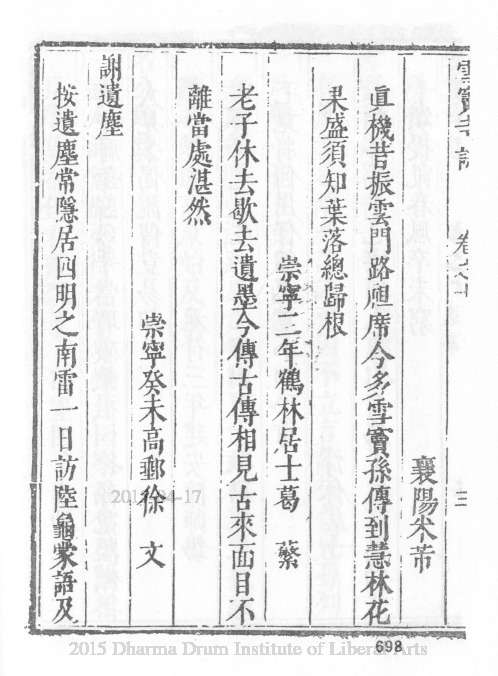 雪竇寺誌 卷之 三
襄陽米芾
直機昔振雲門路祖席今多雪竇孫傳到慧林花
果盛須知葉落總歸根
崇寧二年鶴林居士葛 蘩
老子休去歇去遺墨今傳古傳相見古來面目不
離當處湛然
崇寧癸未高郵徐 文
謝遺塵
按遺塵常隱居四明之南雷一日訪陸龜蒙語及
698
2015 Dharma Drum Institute of Liberal Arts